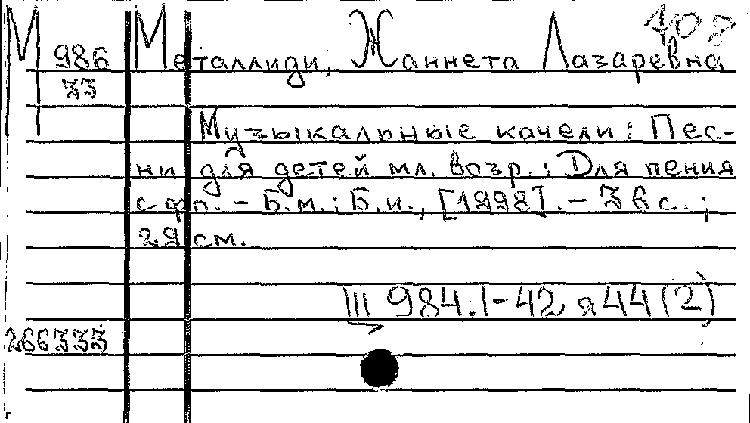 М 986 Металлиди, Жаннета Лазаревна
33
Музыкальные качели: Пес-
ни для детей мл. возр.: Для пения
с фп. - Б.м.: Б.и., [1998]. - 36 с.;
29 см.
III 984.1-42 я44(2)
266333